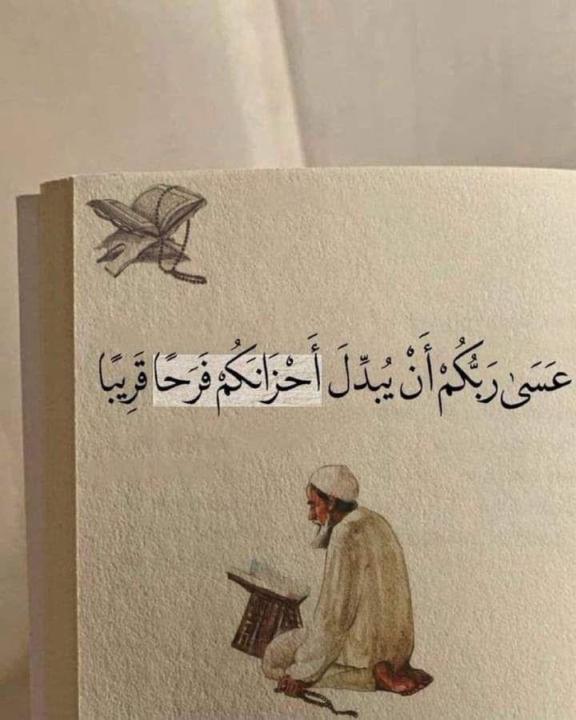 عَسَىٰ رَبُّكُمْ أَنْ يُبدِّلَ أَحْزَانَكُمْ فَرَحًا قَرِيبًا